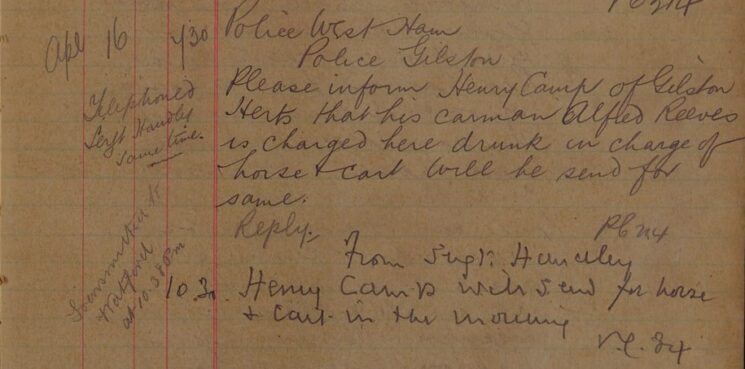 Apl 16 7/30 Police West Ham
Police Gilston
Please inform Henry Camp of Gilston
Herts that his carman Alfred Reeves
is charged here drunk in charge of
horse & cart will he send for
same.
Telephoned
Sergt Handley
same time.
Reply.
From Sergt. Handley
10.30. Henry Camp will send for horse
& cart in the morning
Transmitted to
at 10.38 pm